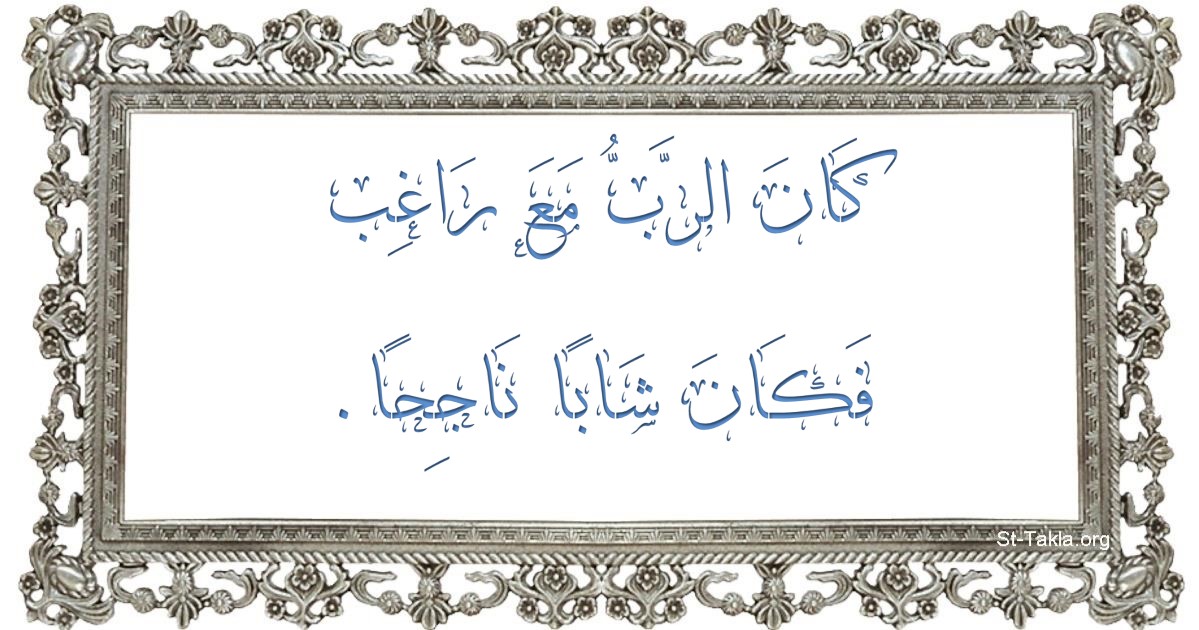 كَانَ الرَّبُّ مَعَ رَاغِب
فَكَانَ شَابًا نَاجِحًا .
St-Takla.org